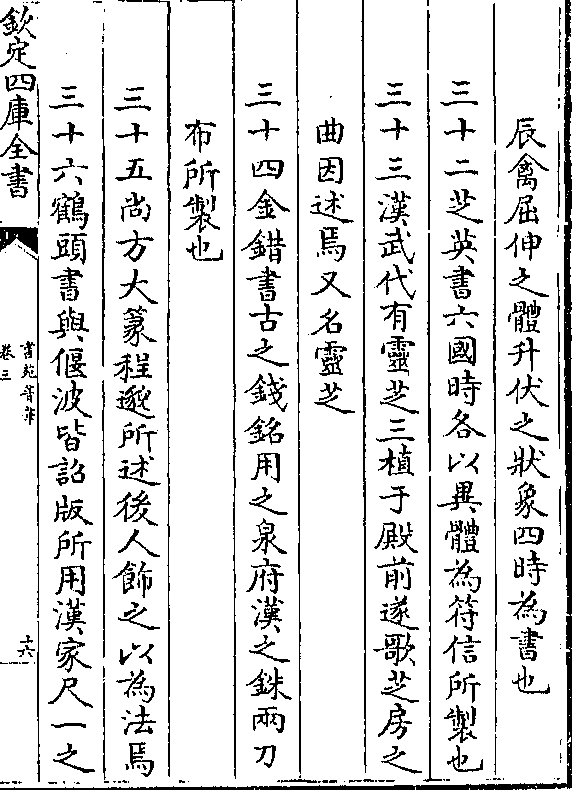 辰禽屈伸之體升伏之狀象四時為書也
三十二芝英書六國時各以異體為符信所製也
三十三漢武代有靈芝三植于殿前遂歌芝房之
曲因述焉又名靈芝
三十四金錯書古之錢銘用之泉府漢之銖兩刀
布所製也
三十五尚方大篆程邈所述後人飾之以為法焉
三十六鶴頭書與偃波皆詔版所用漢家尺一之
欽定四庫全書
書苑菁華
卷三
十六